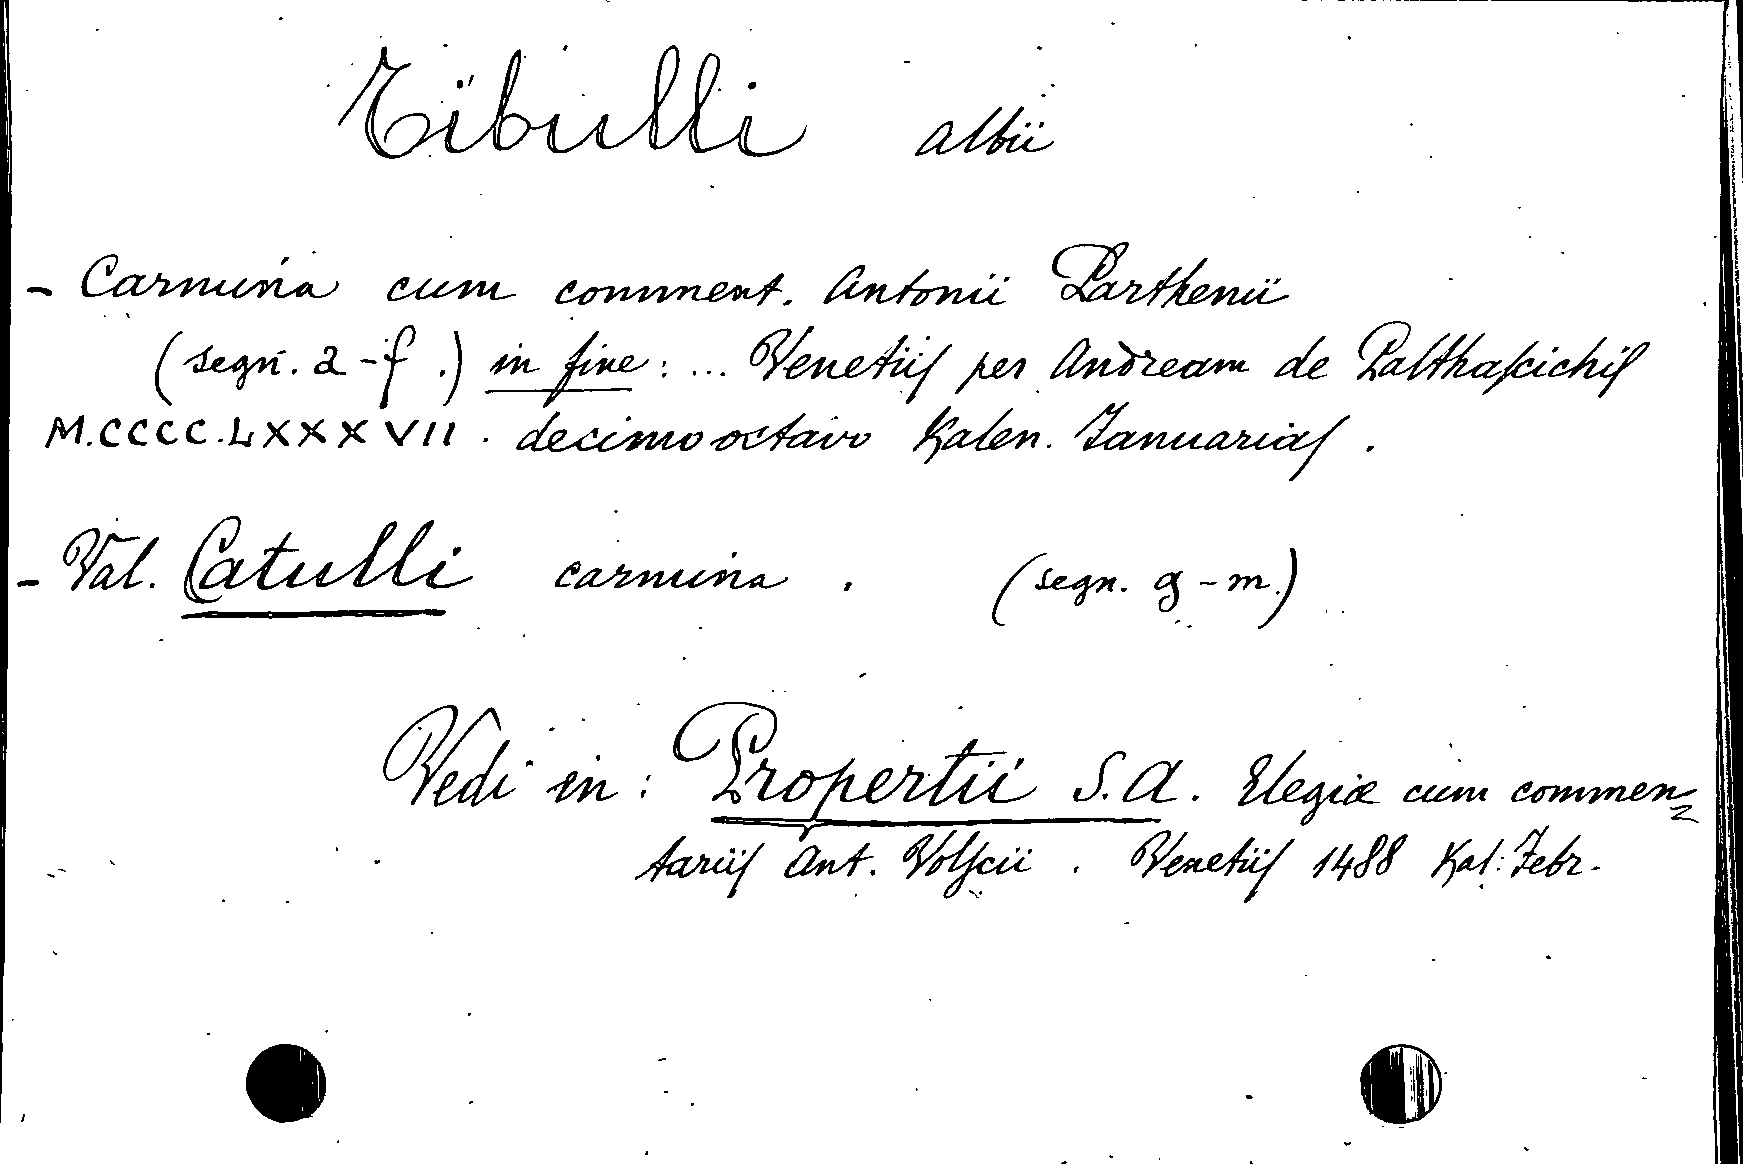 Tibulli Albii
- Carmina cum comment. Antonii Parthenii
(segn. a-f.) in fine: ... Venetiis per Andream de Palthascichis
M.CCCC.LXXXVII. decimooctavo Kalen. Januarias.
- Val. Catulli carmina. (segn. g-m.)
Vedi in: Propertii S.A. Elegiæ cum commen=
tariis Ant. Volscii. Venetiis 1488 Kal: Febr.